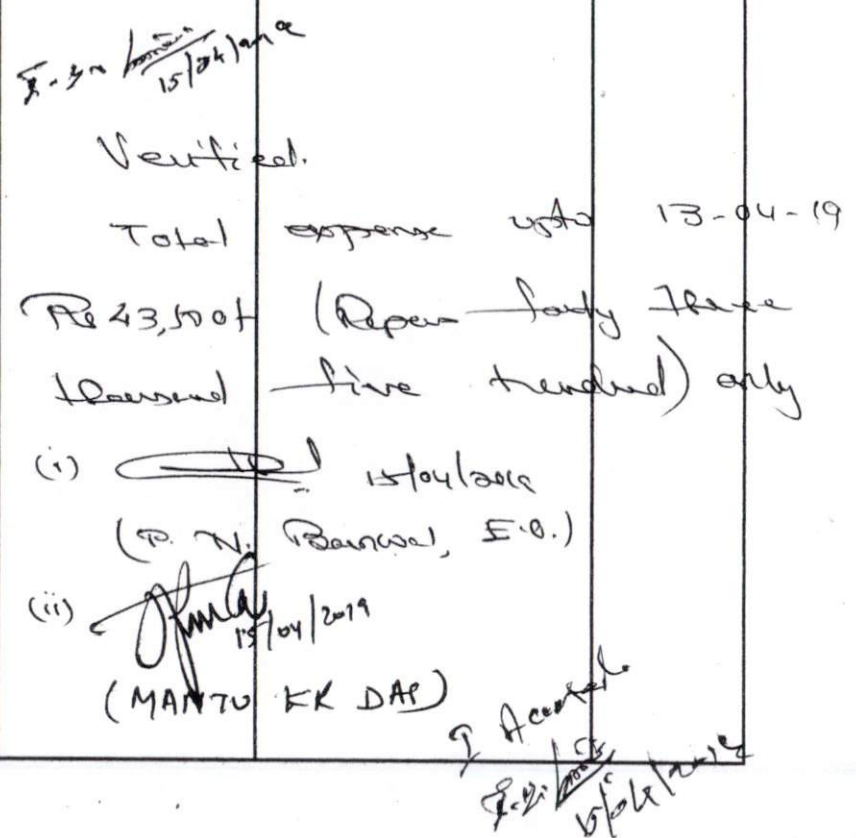 15/04/2019
Verified.
Total expense upto 13-04-19
Rs 43,500/- (Rupees forty three
thousand five hundred) only
(i) 15/04/2019
(P. N. Barnwal, E.O.)
(ii) 15/04/2019
(MANTU KR DAS)
I Accept
15/04/2019